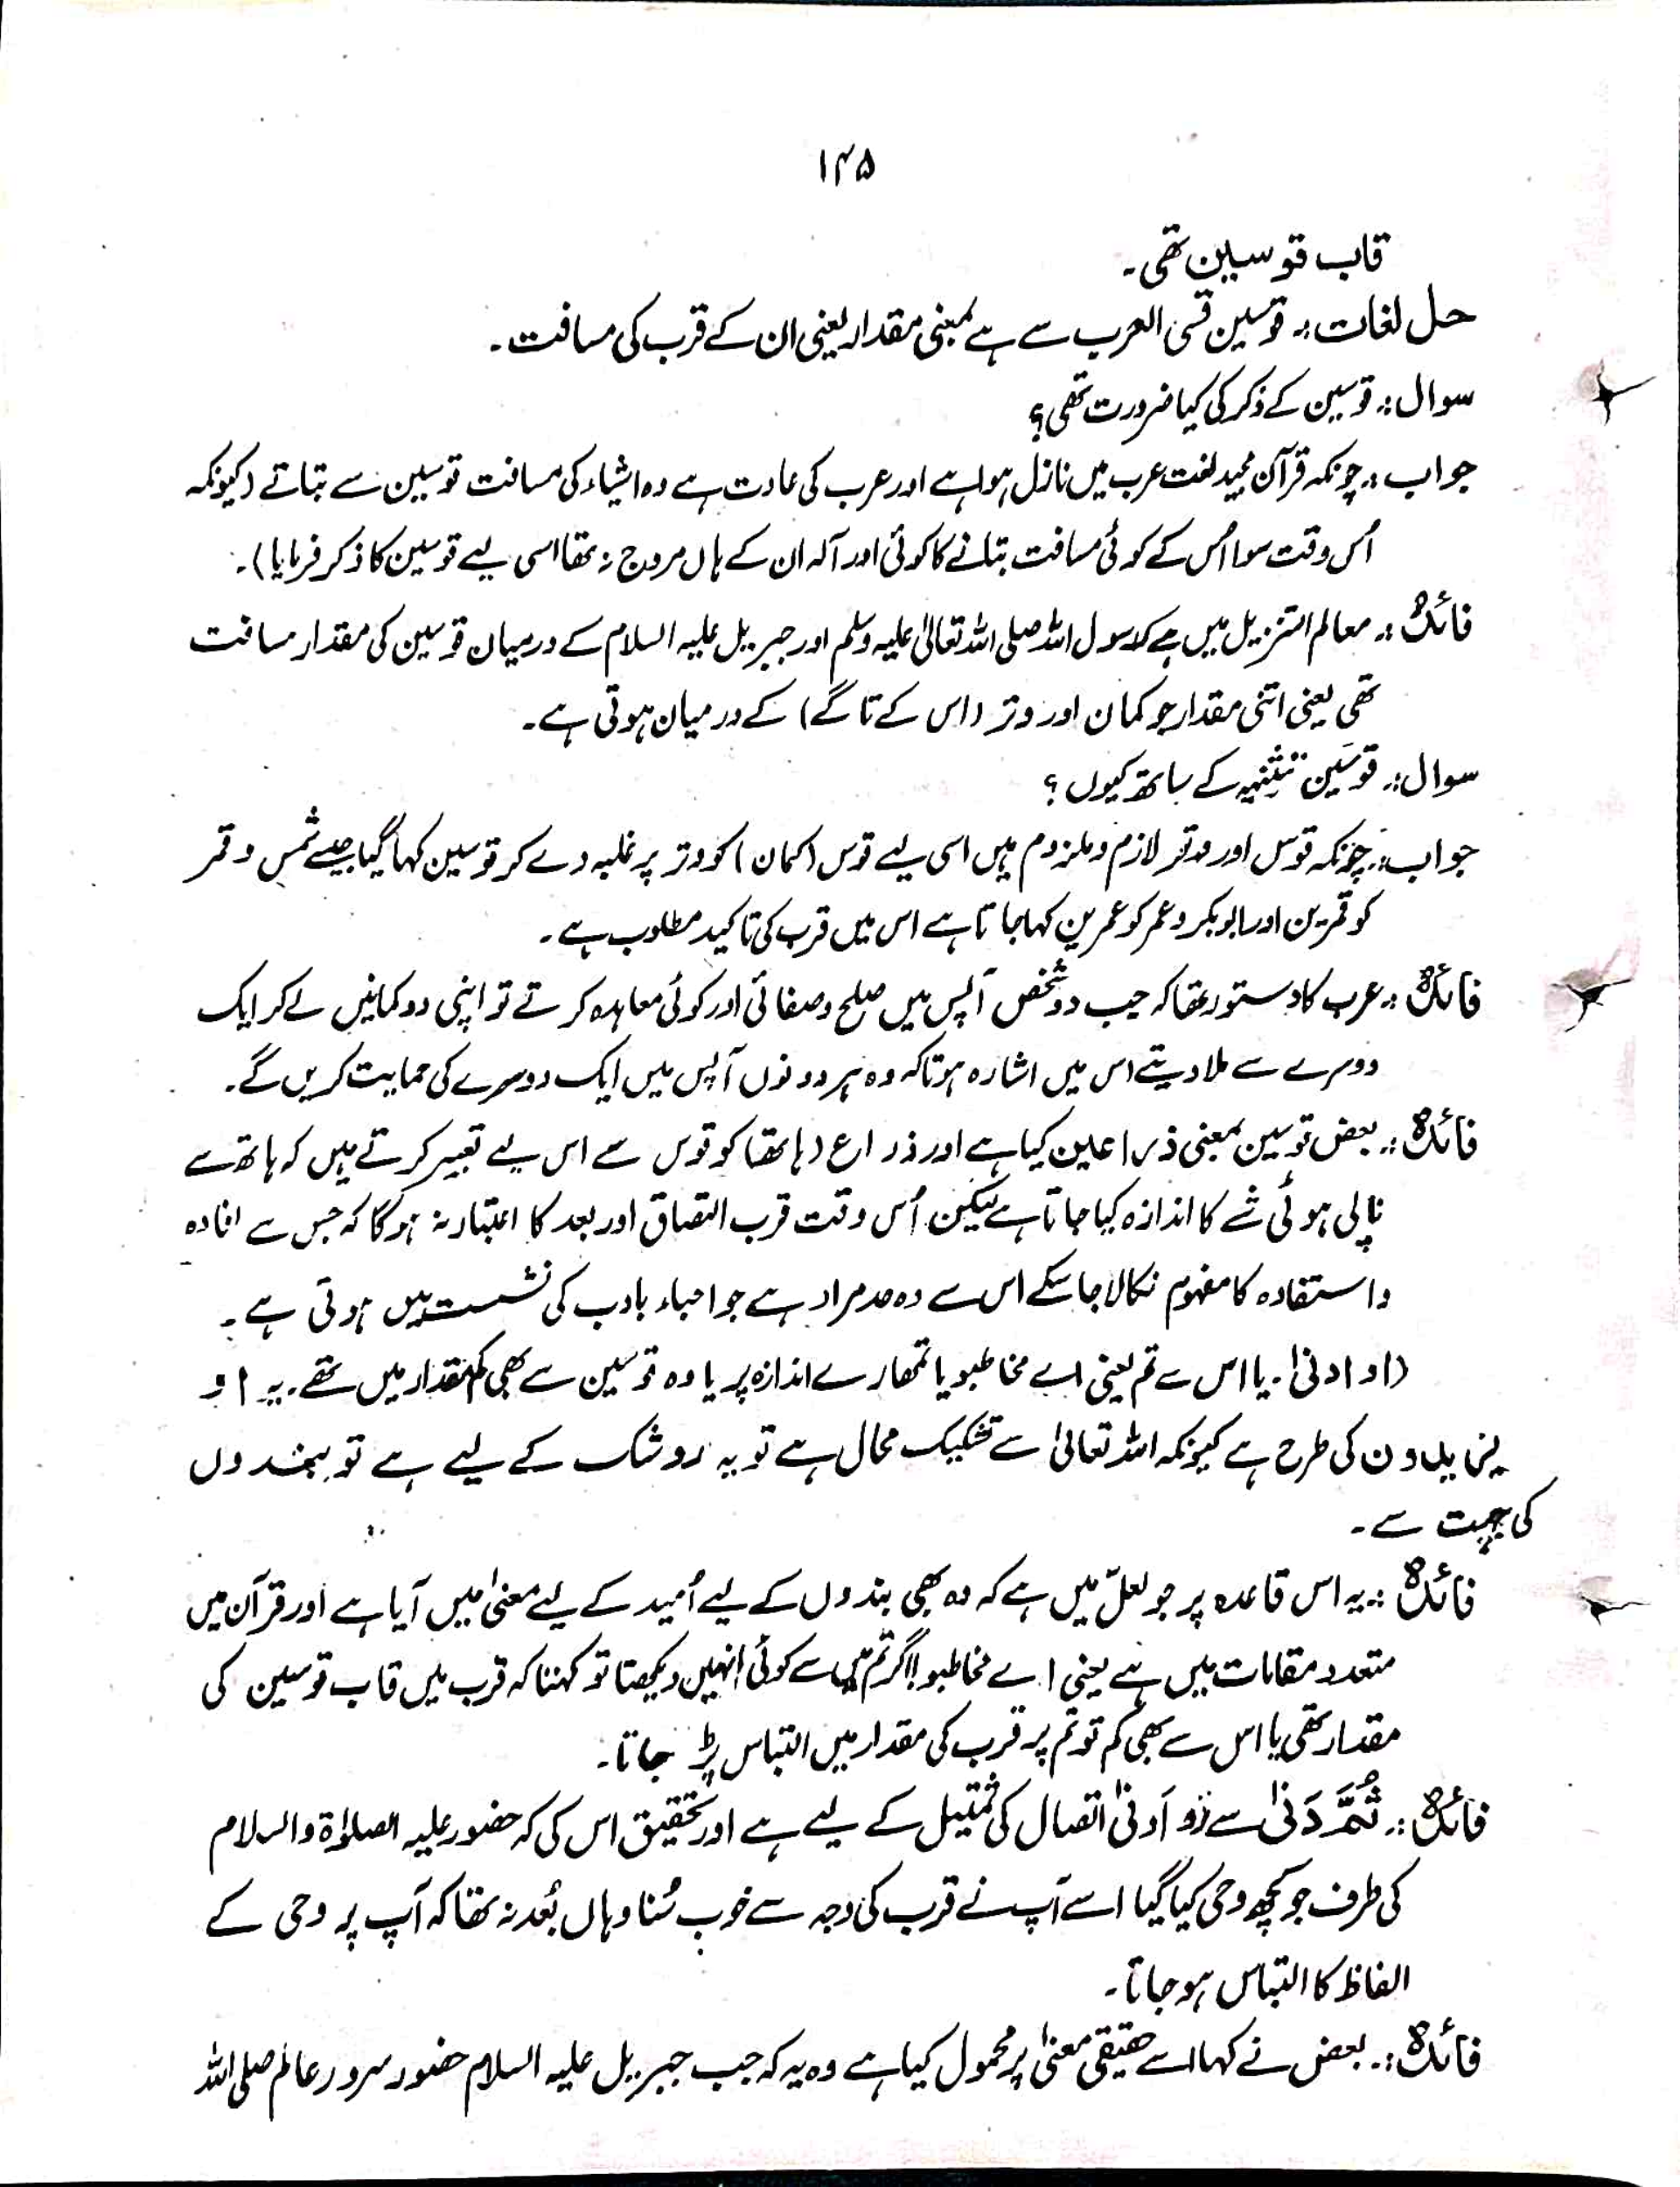 ۱۴۵
قاب قوسین تھی۔
حل لغات :۔ قوسین قسی العرب سے ہے بمعنی مقدار یعنی ان کے قرب کی مسافت۔
سوال :۔ قوسین کے ذکر کی کیا ضرورت تھی؟
جواب :۔ چونکہ قرآن مجید لغت عرب میں نازل ہوا ہے اور عرب کی عادت ہے وہ اشیاء کی مسافت قوسین سے بتاتے (کیونکہ
اُس وقت سوا اُس کے کوئی مسافت بتانے کا کوئی اور آلہ ان کے ہاں مروج نہ تھا اسی لیے قوسین کا ذکر فرمایا)۔
فائدہ :۔ معالم التنزیل میں ہے کہ رسول اللہ صلی اللہ تعالیٰ علیہ وسلم اور جبریل علیہ السلام کے درمیان قوسین کی مقدار مسافت
تھی یعنی اتنی مقدار جو کمان اور وتر (اس کے تاگے) کے درمیان ہوتی ہے۔
سوال :۔ قوسَین تثنیہ کے ساتھ کیوں؟
جواب :۔ چونکہ قوس اور وتر لازم و ملزوم ہیں اسی لیے قوس (کمان) کو وتر پر غلبہ دے کر قوسین کہا گیا جیسے شمس و قمر
کو قمرین اور ابوبکر و عمر کو عمرین کہا جاتا ہے اس میں قرب کی تاکید مطلوب ہے۔
فائدہ :۔ عرب کا دستور تھا کہ جب دو شخص آپس میں صلح و صفائی اور کوئی معاہدہ کرتے تو اپنی دو کمانیں لے کر ایک
دوسرے سے ملا دیتے اس میں اشارہ ہوتا کہ وہ ہر دونوں آپس میں ایک دوسرے کی حمایت کریں گے۔
فائدہ :۔ بعض قوسین بمعنی ذراعین کیا ہے اور ذراع (ہاتھ) کو قوس سے اس لیے تعبیر کرتے ہیں کہ ہاتھ سے
ناپی ہوئی شے کا اندازہ کیا جاتا ہے لیکن اُس وقت قرب التصاق اور بعد کا اعتبار نہ ہوگا کہ جس سے افادہ
و استفادہ کا مفہوم نکالا جا سکے اس سے وہ حد مراد ہے جو احباء بادب کی نشست میں ہوتی ہے۔
(او ادنیٰ۔ یا اس سے تم یعنی اے مخاطبو یا تمھارے اندازہ پر یا وہ قوسین سے بھی کم مقدار میں تھے۔ یہ او
یزیدون کی طرح ہے کیونکہ اللہ تعالیٰ سے تشکیک محال ہے تو یہ رو شک کے لیے ہے تو بندوں
کی جہت سے۔
فائدہ :۔ یہ اس قاعدہ پر جو لعلّ میں ہے کہ وہ بھی بندوں کے لیے اُمید کے لیے معنیٰ میں آیا ہے اور قرآن میں
متعدد مقامات میں ہے یعنی اے مخاطبو! اگر تم میں سے کوئی انہیں دیکھتا تو کہتا کہ قرب میں قاب قوسین کی
مقدار تھی یا اس سے بھی کم تو تم پر قرب کی مقدار میں التباس پڑ جاتا۔
فائدہ :۔ ثُمَّ دَنیٰ سے اَو اَدنیٰ اتصال کی تمثیل کے لیے ہے اور تحقیق اس کی کہ حضور علیہ الصلوٰۃ والسلام
کی طرف جو کچھ وحی کیا گیا اسے آپ نے قرب کی وجہ سے خوب سُنا وہاں بُعد نہ تھا کہ آپ پر وحی کے
الفاظ کا التباس ہو جاتا۔
فائدہ :۔ بعض نے کہا اسے حقیقی معنیٰ پر محمول کیا ہے وہ یہ کہ جب جبریل علیہ السلام حضور سرور عالم صلی اللہ